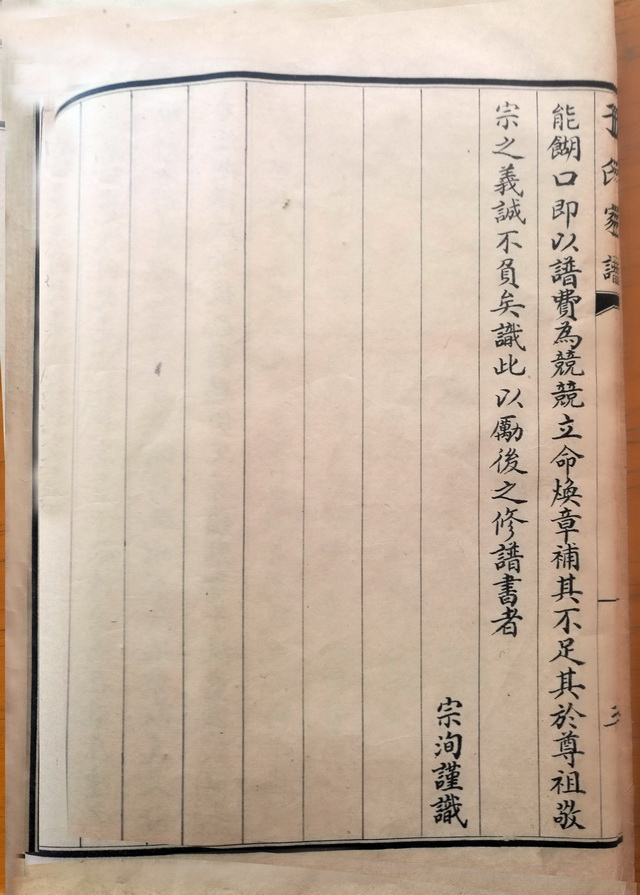 能餬口即以譜費為競競立命煥章補其不足其於尊祖敬
宗之義誠不負矣識此以勵後之修譜書者
宗洵謹識
氏家譜